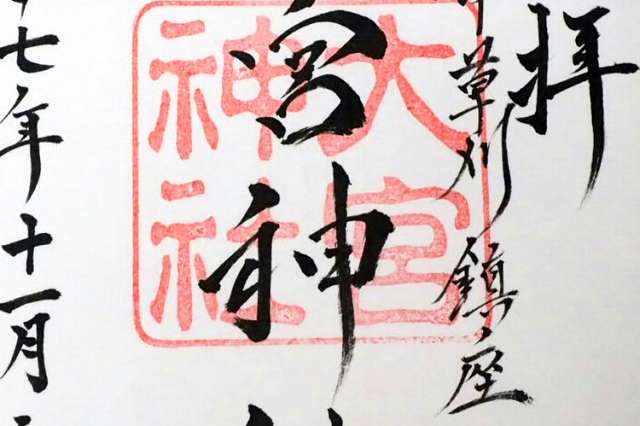 拝
草刈鎮座
宮神
七年十一月
大宮
神社